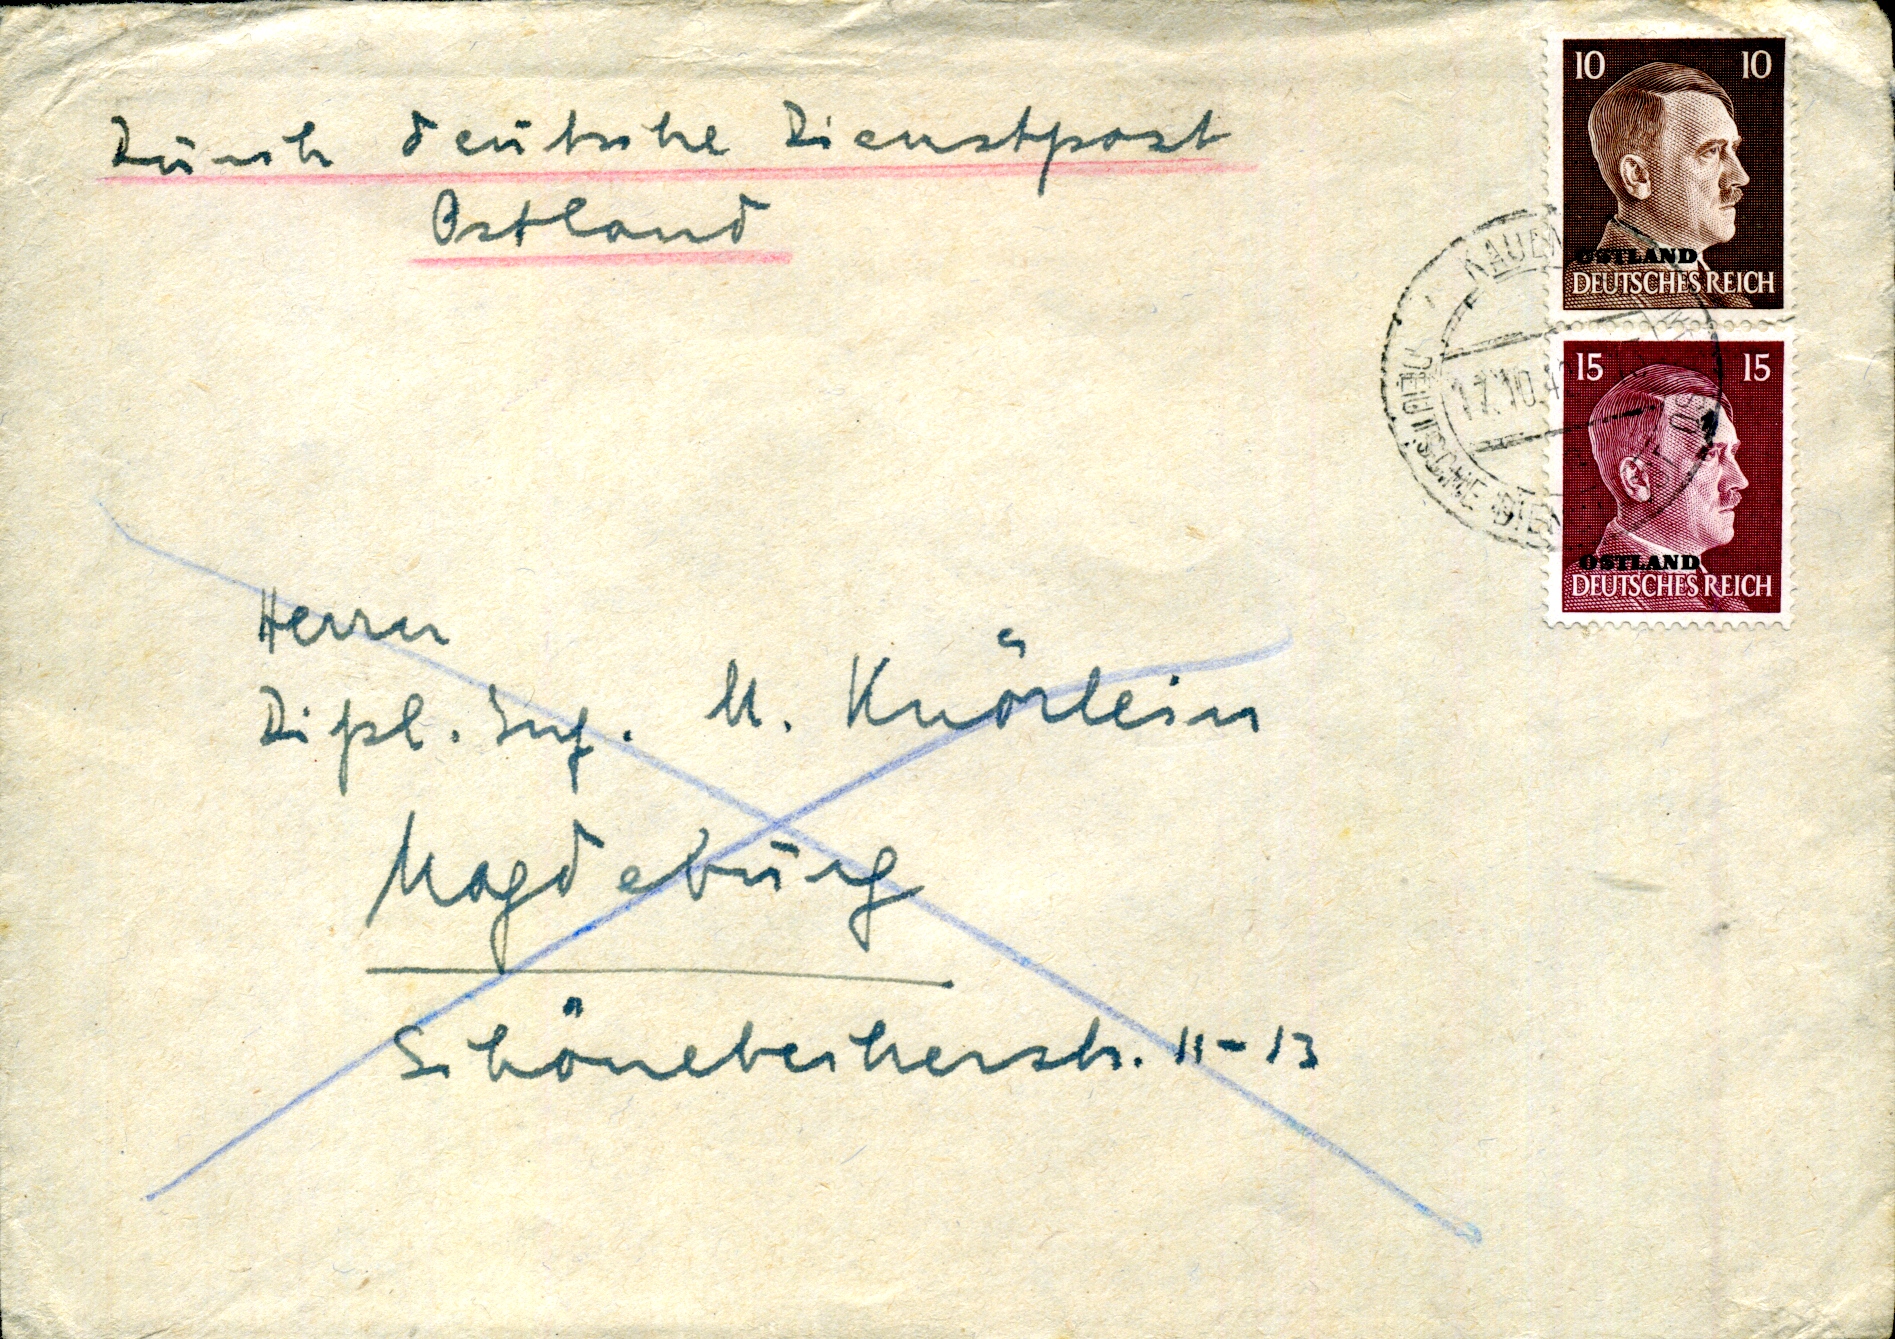 Durch deutsche Dienstpost
Ostland
10 10
OSTLAND
DEUTSCHES REICH
15 15
OSTLAND
DEUTSCHES REICH
KAUEN
17.10.4
DEUTSCHE DIEN
Herrn
Dipl. Ing. M. Knörlein
Magdeburg
Schönebeckerstr. 11-13